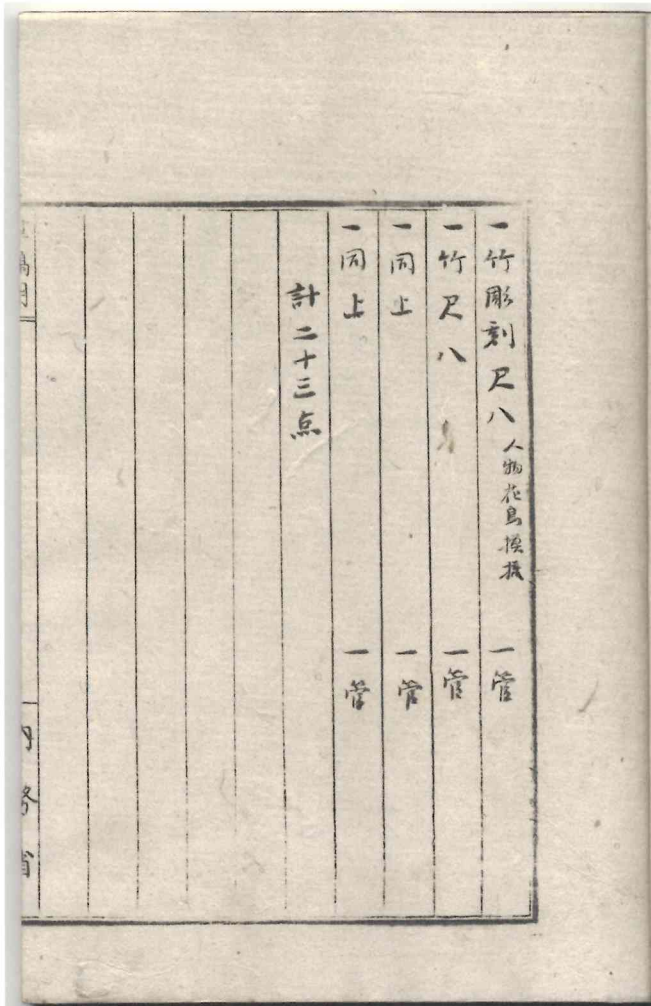 一竹彫刻尺八 人物花鳥摸様 一管
一竹尺八 一管
一同上 一管
一同上 一管
計二十三点
内務省